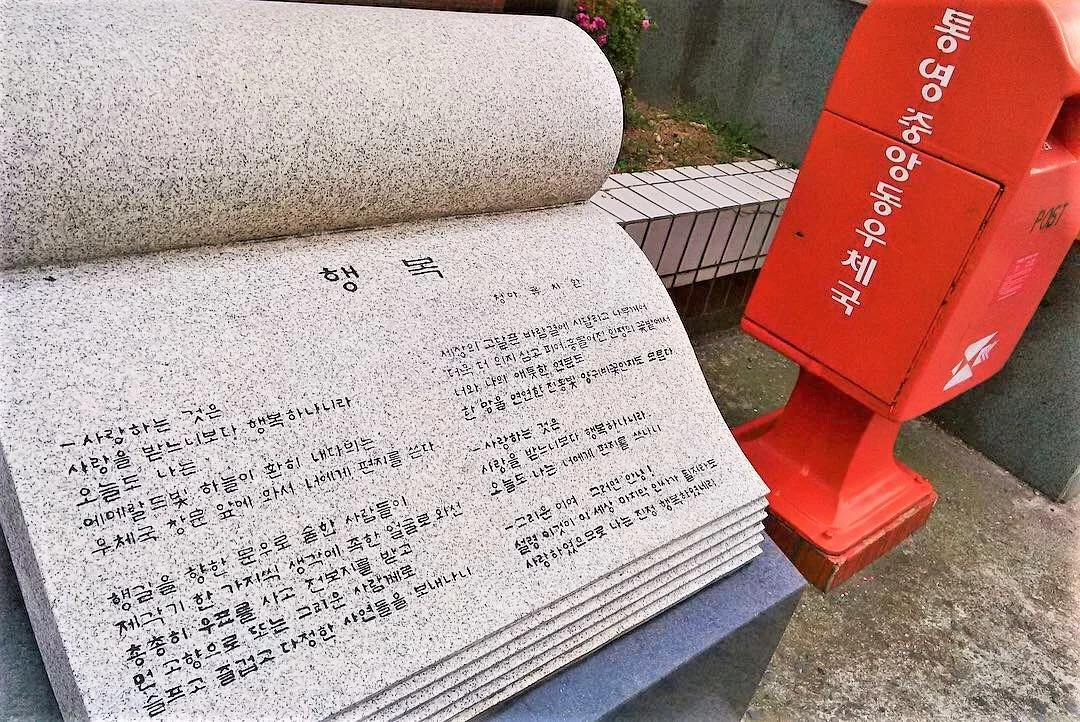 행 복
청마 유 치 환
–사랑하는 것은
사랑을 받느니보다 행복하나니라
오늘도 나는
에메랄드빛 하늘이 환히 내다뵈는
우체국 창문 앞에 와서 너에게 편지를 쓴다
행길을 향한 문으로 숱한 사람들이
제각기 한 가지씩 생각에 족한 얼굴로 와선
총총히 우표를 사고 전보지를 받고
먼 고향으로 또는 그리운 사람께로
슬프고 즐겁고 다정한 사연들을 보내나니
세상의 고달픈 바람결에 시달리고 나부끼어
더욱 더 의지 삼고 피어 흥클어진 인정의 꽃밭에서
너와 나의 애틋한 연분도
한 망울 연연한 진홍빛 양귀비꽃인지도 모른다
–사랑하는 것은
사랑을 받느니보다 행복하나니라
오늘도 나는 너에게 편지를 쓰나니
–그리운 이여 그러면 안녕!
설령 이것이 이 세상 마지막 인사가 될지라도
사랑하였으므로 나는 진정 행복하였네라
통영중앙동우체국
POST